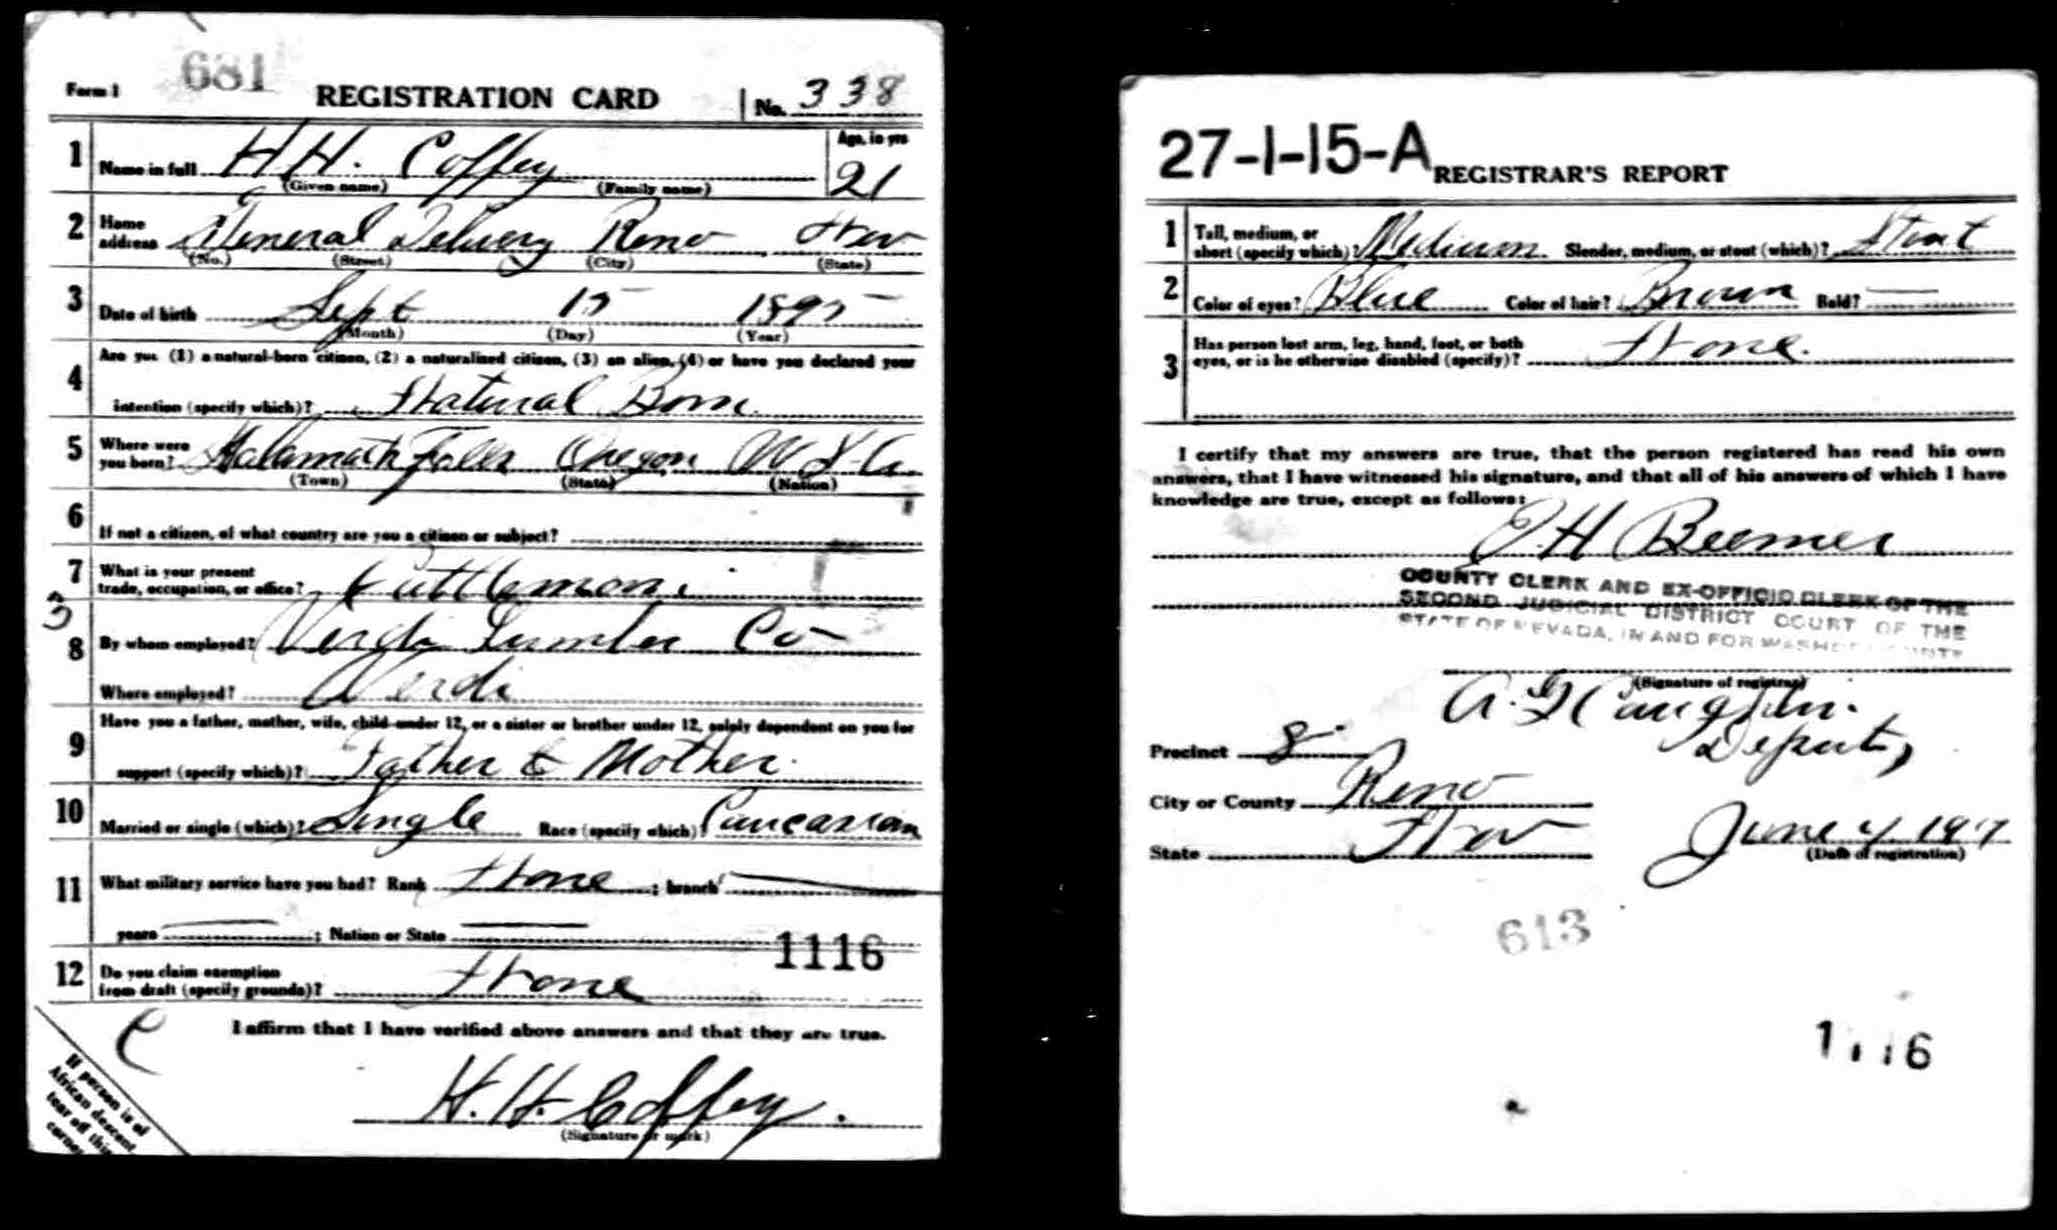 681
Form 1 REGISTRATION CARD No. 338
1 Name in full H. H. Coffey Age, in yrs 21
(Given name) (Family name)
2 Home address General Delivery Reno Nev
(No.) (Street) (City) (State)
3 Date of birth Sept 15 1895
(Month) (Day) (Year)
4 Are you (1) a natural-born citizen, (2) a naturalized citizen, (3) an alien, (4) or have you declared your
intention (specify which)? Natural Born
5 Where were you born? Kalamath Falls Oregon U S A
(Town) (State) (Nation)
6 If not a citizen, of what country are you a citizen or subject?
7 What is your present trade, occupation, or office? Cattleman
3
8 By whom employed? Verdi Lumber Co
Where employed? Verdi
9 Have you a father, mother, wife, child under 12, or a sister or brother under 12, solely dependent on you for
support (specify which)? Father & Mother
10 Married or single (which)? Single Race (specify which)? Caucasian
11 What military service have you had? Rank None ; branch
years ; Nation or State
1116
12 Do you claim exemption from draft (specify grounds)? None
I affirm that I have verified above answers and that they are true.
C
H. H. Coffey.
(Signature or mark)
If person is of
African descent,
tear off this
corner.
27-1-15-A REGISTRAR'S REPORT
1 Tall, medium, or short (specify which)? Medium. Slender, medium, or stout (which)? Stout
2 Color of eyes? Blue Color of hair? Brown Bald? —
3 Has person lost arm, leg, hand, foot, or both eyes, or is he otherwise disabled (specify)? None.
I certify that my answers are true, that the person registered has read his own
answers, that I have witnessed his signature, and that all of his answers of which I have
knowledge are true, except as follows:
Beemer
COUNTY CLERK AND EX-OFFICIO CLERK OF THE
SECOND JUDICIAL DISTRICT COURT OF THE
STATE OF NEVADA, IN AND FOR WASHOE COUNTY
(Signature of registrar)
Deputy
Precinct 8
City or County Reno
State Nev June 4 1917
(Date of registration)
613
1116